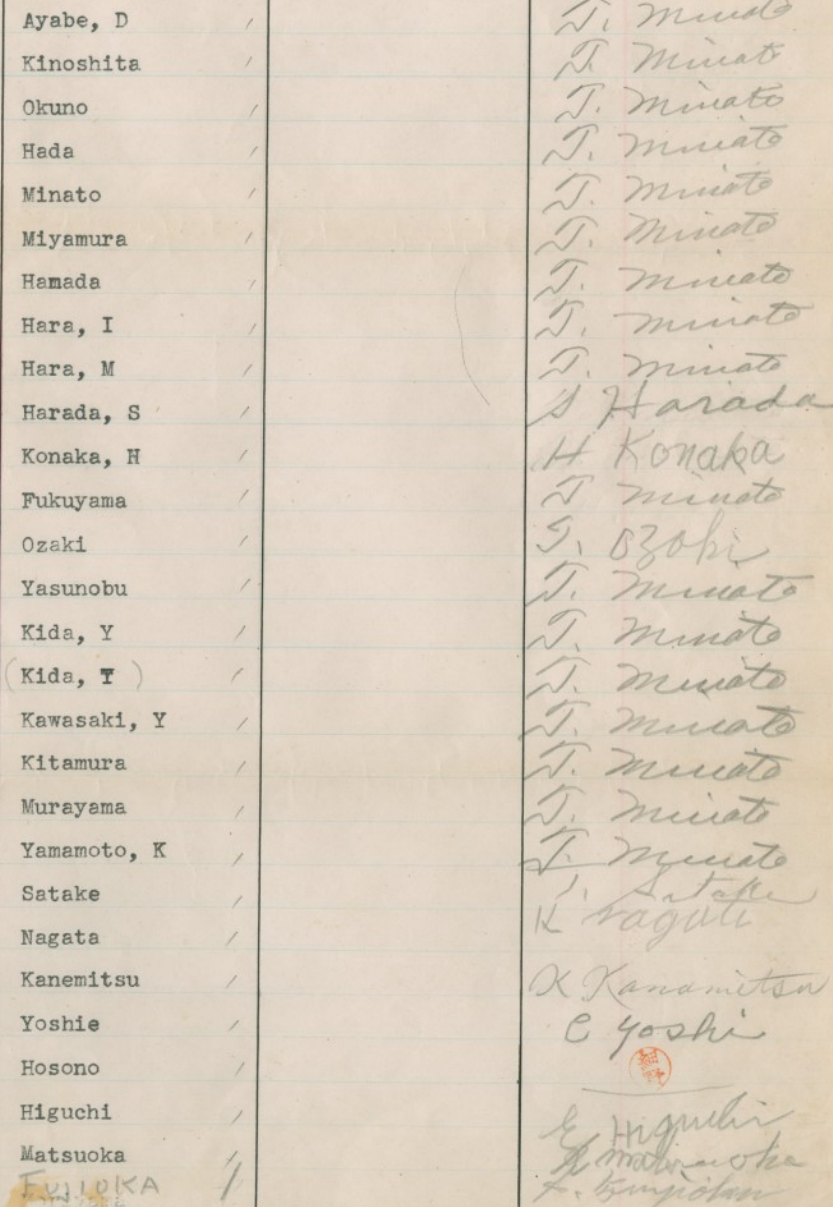 Ayabe, D / T. Minato
Kinoshita / T. Minato
Okuno / T. Minato
Hada / T. Minato
Minato / T. Minato
Miyamura / T. Minato
Hamada / T. Minato
Hara, I / T. Minato
Hara, M / T. Minato
Harada, S / S Harada
Konaka, H / H Konaka
Fukuyama / T Minato
Ozaki / T. Ozaki
Yasunobu / T. Minato
Kida, Y / T. Minato
(Kida, T) / T. Minato
Kawasaki, Y / T. Minato
Kitamura / T. Minato
Murayama / T. Minato
Yamamoto, K / T. Minato
Satake / Satake
Nagata / K
Kanemitsu / K Kanamitsu
Yoshie / C Yoshi
Hosono / 細野
Higuchi / E Higuchi
Matsuoka / Matsuoka
FUJIOKA /